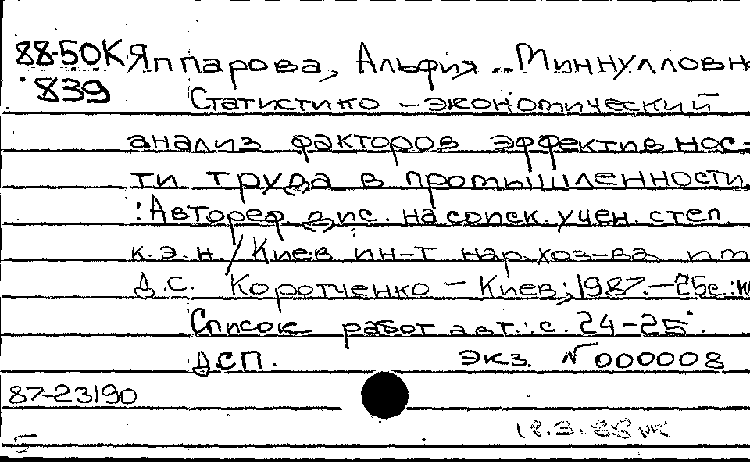 88-50К Яппарова, Альфия Миннулловн
839 Статистико-экономический
анализ факторов эффективнос-
ти труда в промышленности
: Автореф. дис. на соиск. учен. степ.
к.э.н. / Киев ин-т нар. хоз-ва им
Д.С. Коротченко - Киев, 1987. - 25с.:
Список работ авт.: с. 24-25.
ДСП. экз. N 000008
87-23190
18.3.88
5